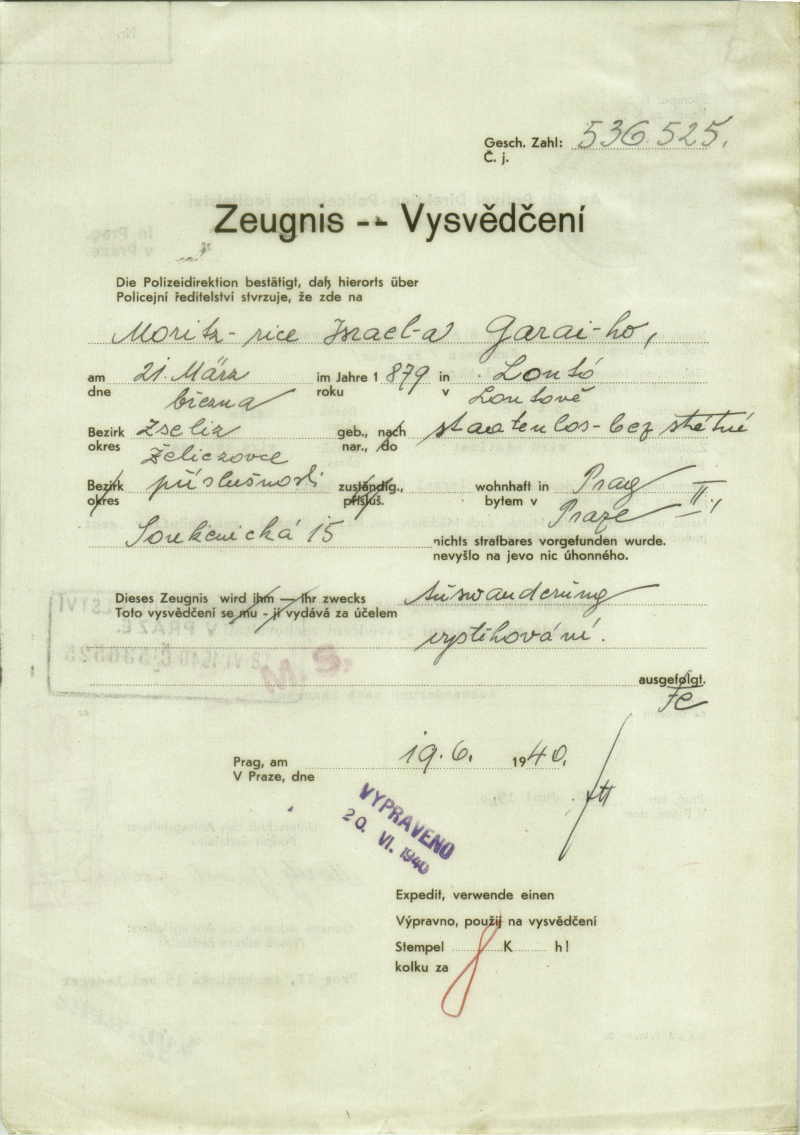 Gesch. Zahl: 536 525.
Č. j.
Zeugnis -- Vysvědčení
Die Polizeidirektion bestätigt, daß hierorts über
Policejní ředitelství stvrzuje, že zde na
Moritz-rice Israel-a Garai-ho,
am 21. März im Jahre 1 879 in Lontó
dne března roku v Lontově
Bezirk Zseliz geb., nach staatenlos-bez státné
okres Želiezovce nar., do
Bezirk příslušnosti zuständig., wohnhaft in Prag
okres přísluš. bytem v Praze II.,
Soukenická 15 nichts strafbares vorgefunden wurde.
nevyšlo na jevo nic úhonného.
Dieses Zeugnis wird ihm — ihr zwecks Auswanderung
Toto vysvědčení se mu - jí vydává za účelem
vystěhování.
ausgefolgt.
Prag, am 19. 6. 1940.
V Praze, dne
VYPRAVENO
20. VI. 1940
Expedit, verwende einen
Výpravno, použij na vysvědčení
Stempel 8 K h!
kolku za